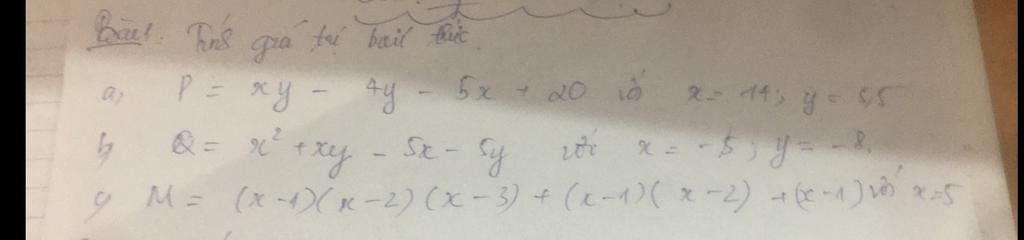 Bài 1. Tính giá trị biểu thức.
a, P = xy - 4y - 5x + 20 với x = 14; y = 5,5
b, Q = x² + xy - 5x - 5y với x = -5; y = -8.
c, M = (x-1)(x-2)(x-3) + (x-1)(x-2) + (x-1) với x=5